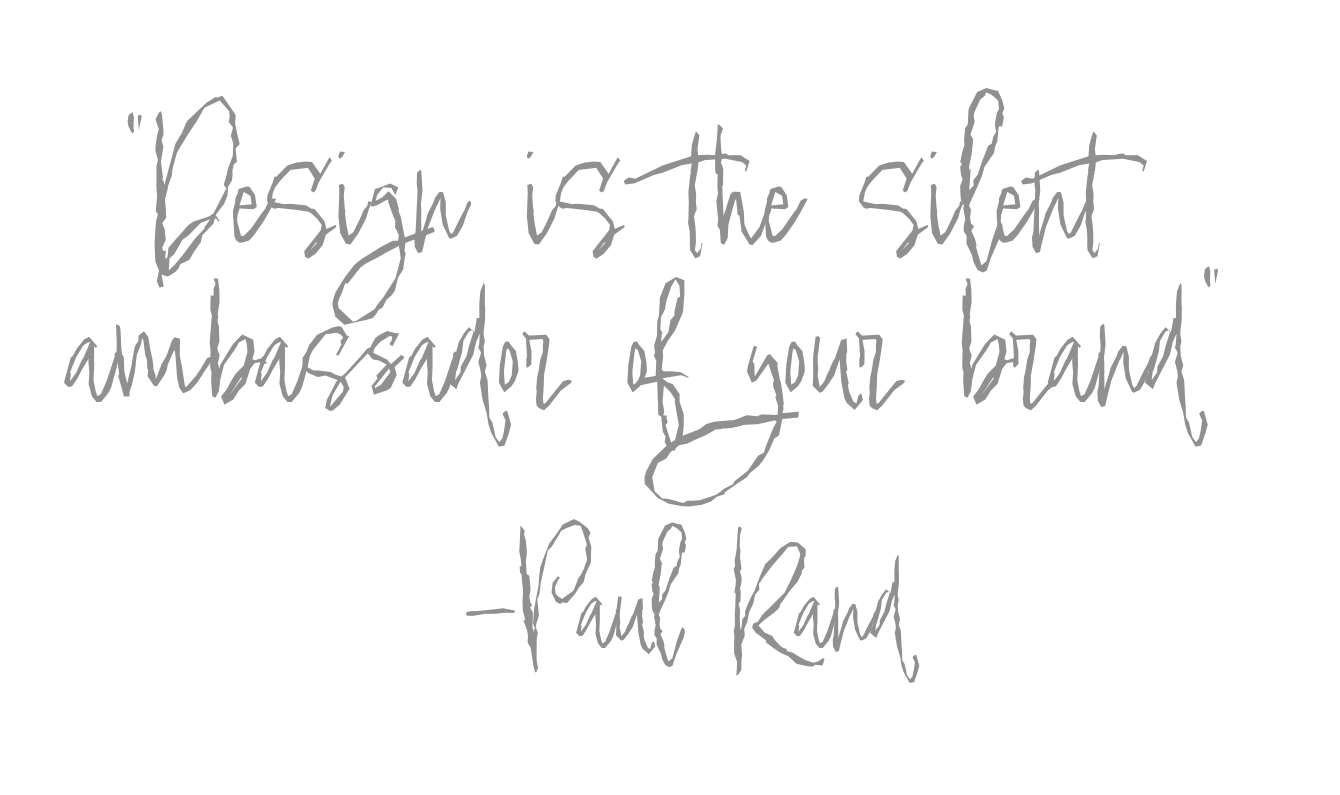 "Design is the silent
ambassador of your brand"
-Paul Rand